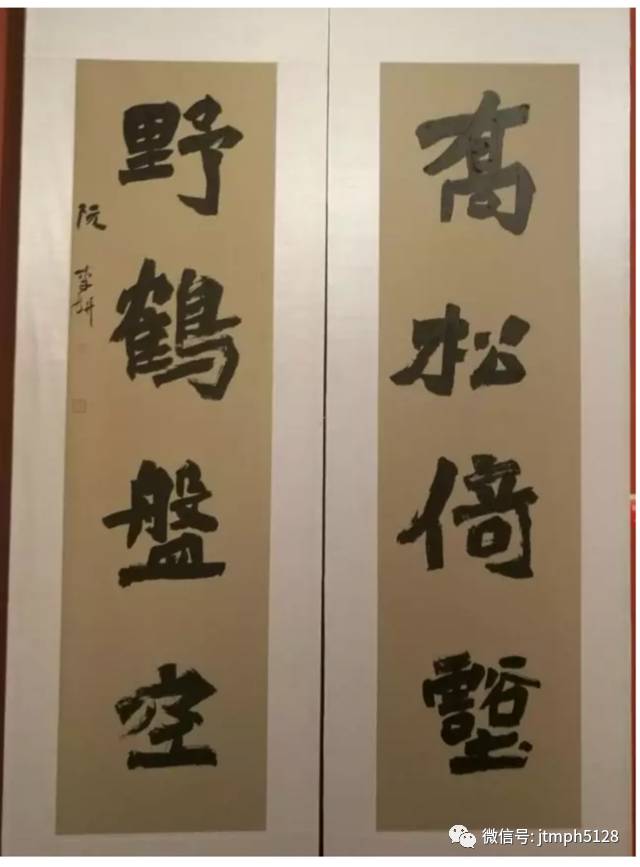 高松倚壑
野鹤盤空
阮
微信号: jtmph5128